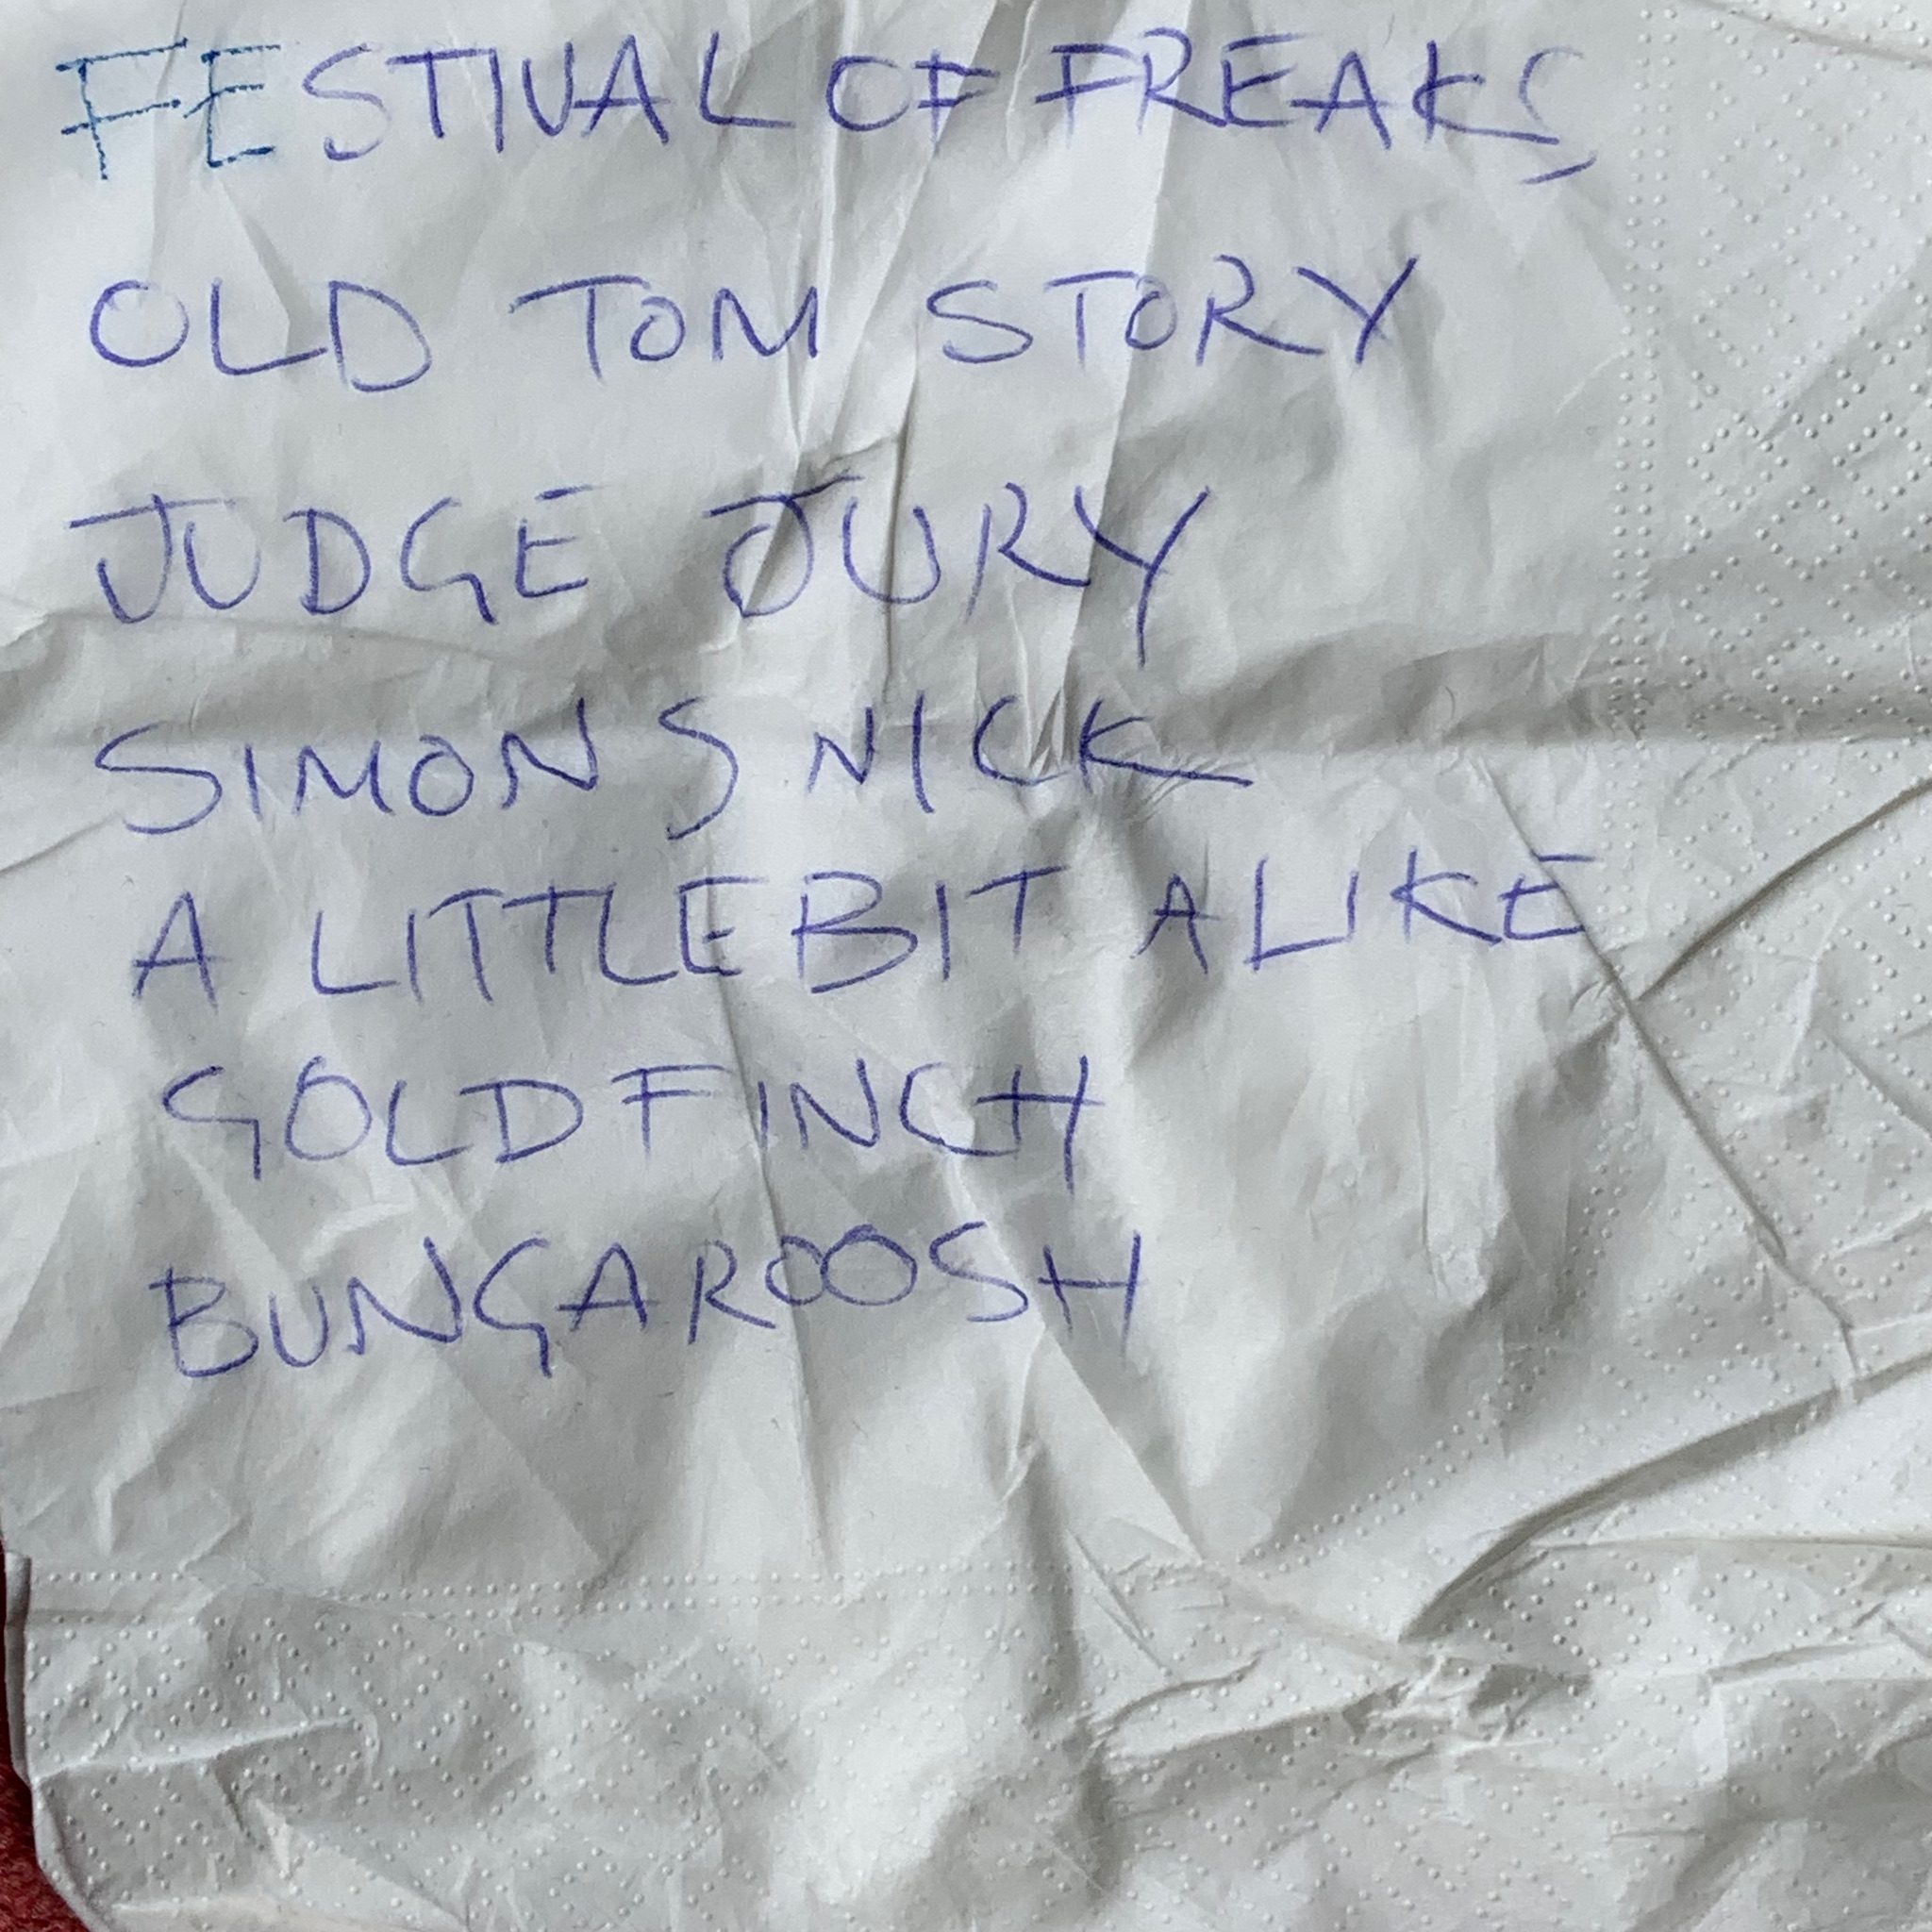 FESTIVAL OF FREAKS
OLD TOM STORY
JUDGE JURY
SIMON S NICK
A LITTLE BIT ALIKE
GOLDFINCH
BUNGAROOSH